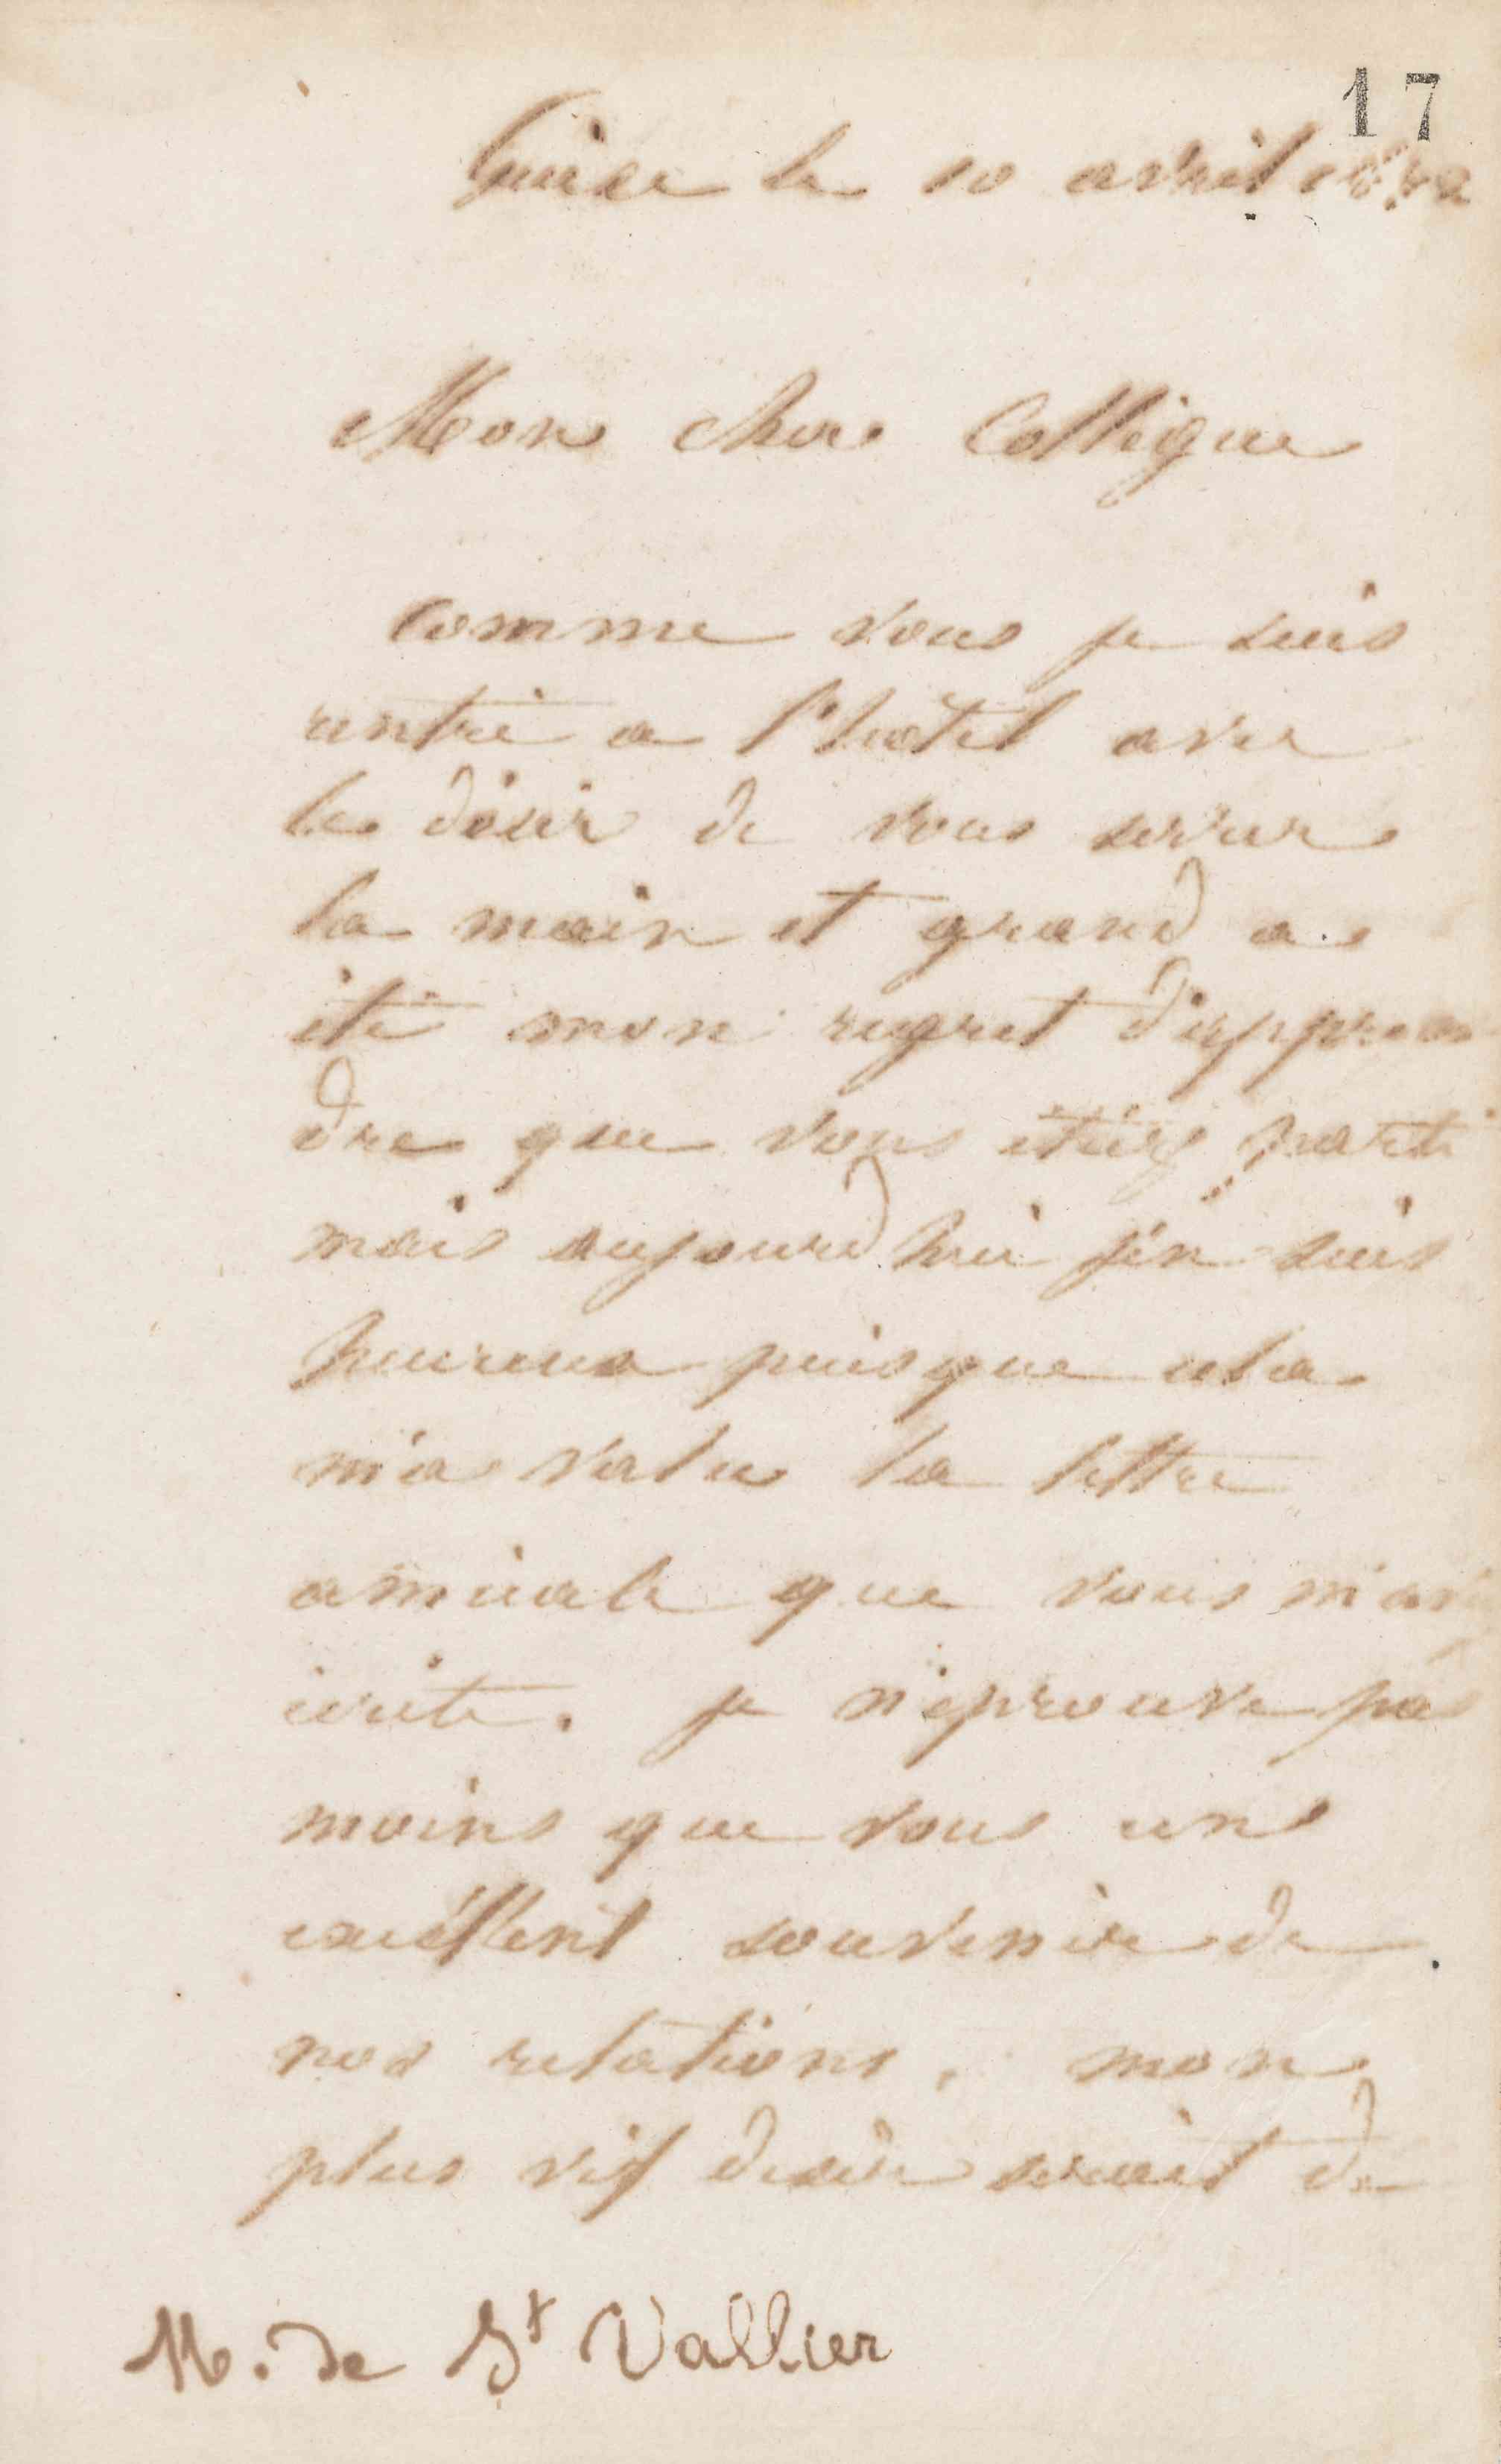 17
Guise le 10 avril 1872
Mon cher Collègue
Comme vous je suis
rentré a l'hotel avec
le désir de vous serrer
la main et grand a
été mon regret d'appren
dre que vous étiez parti
mais aujourd'hui j'en suis
heureux puisque cela
m'a valu la lettre
amicale que vous m'avez
écrite. je n'éprouve pas
moins que vous un
excéllent souvenir de
nos relations, mon
plus vif desir serait de
M. de St Vallier